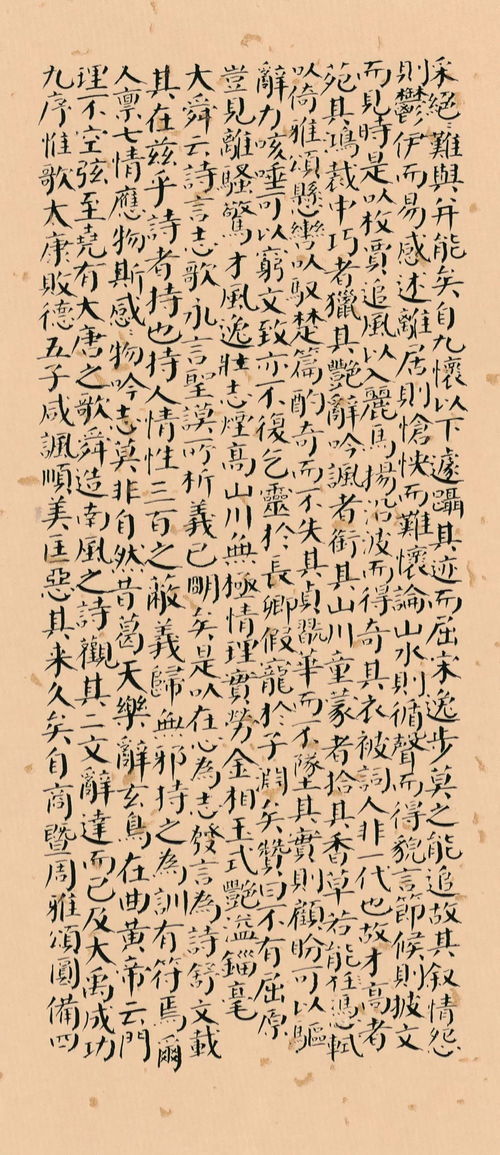 採絕〻難與并能矣自九懷以下遽躡其迹而屈宋逸步莫之能追故其叙情怨
則鬱伊而易感述離居則愴怏而難懷論山水則循聲而得貌言節候則披文
而見時是以枚賈追風以入麗馬揚沿波而得奇其衣被詞人非一代也故才高者
苑其鴻裁中巧者獵其艷辭吟諷者銜其山川童蒙者拾其香草若能憑軾
以倚雅頌懸轡以馭楚篇酌奇而不失其貞翫華而不墜其實則顧盼可以驅
辭力咳唾可以窮文致亦不復乞靈於長卿假寵於子淵矣贊曰不有屈原
豈見離騷驚才風逸壯志煙高山川無極情理實勞金相玉式艷溢錙毫
大舜云詩言志歌永言聖謨所析義已明矣是以在心為志發言為詩舒文載
其在茲乎詩者持也持人情性三百之蔽義歸無邪持之為訓有符焉爾
人禀七情應物斯感〻物吟志莫非自然昔葛天樂辭玄鳥在曲黃帝云門
理不空弦至堯有大唐之歌舜造南風之詩觀其二文辭達而已及大禹成功
九序惟歌太康敗德五子咸諷順美匡惡其来久矣自商暨周雅頌圓備四